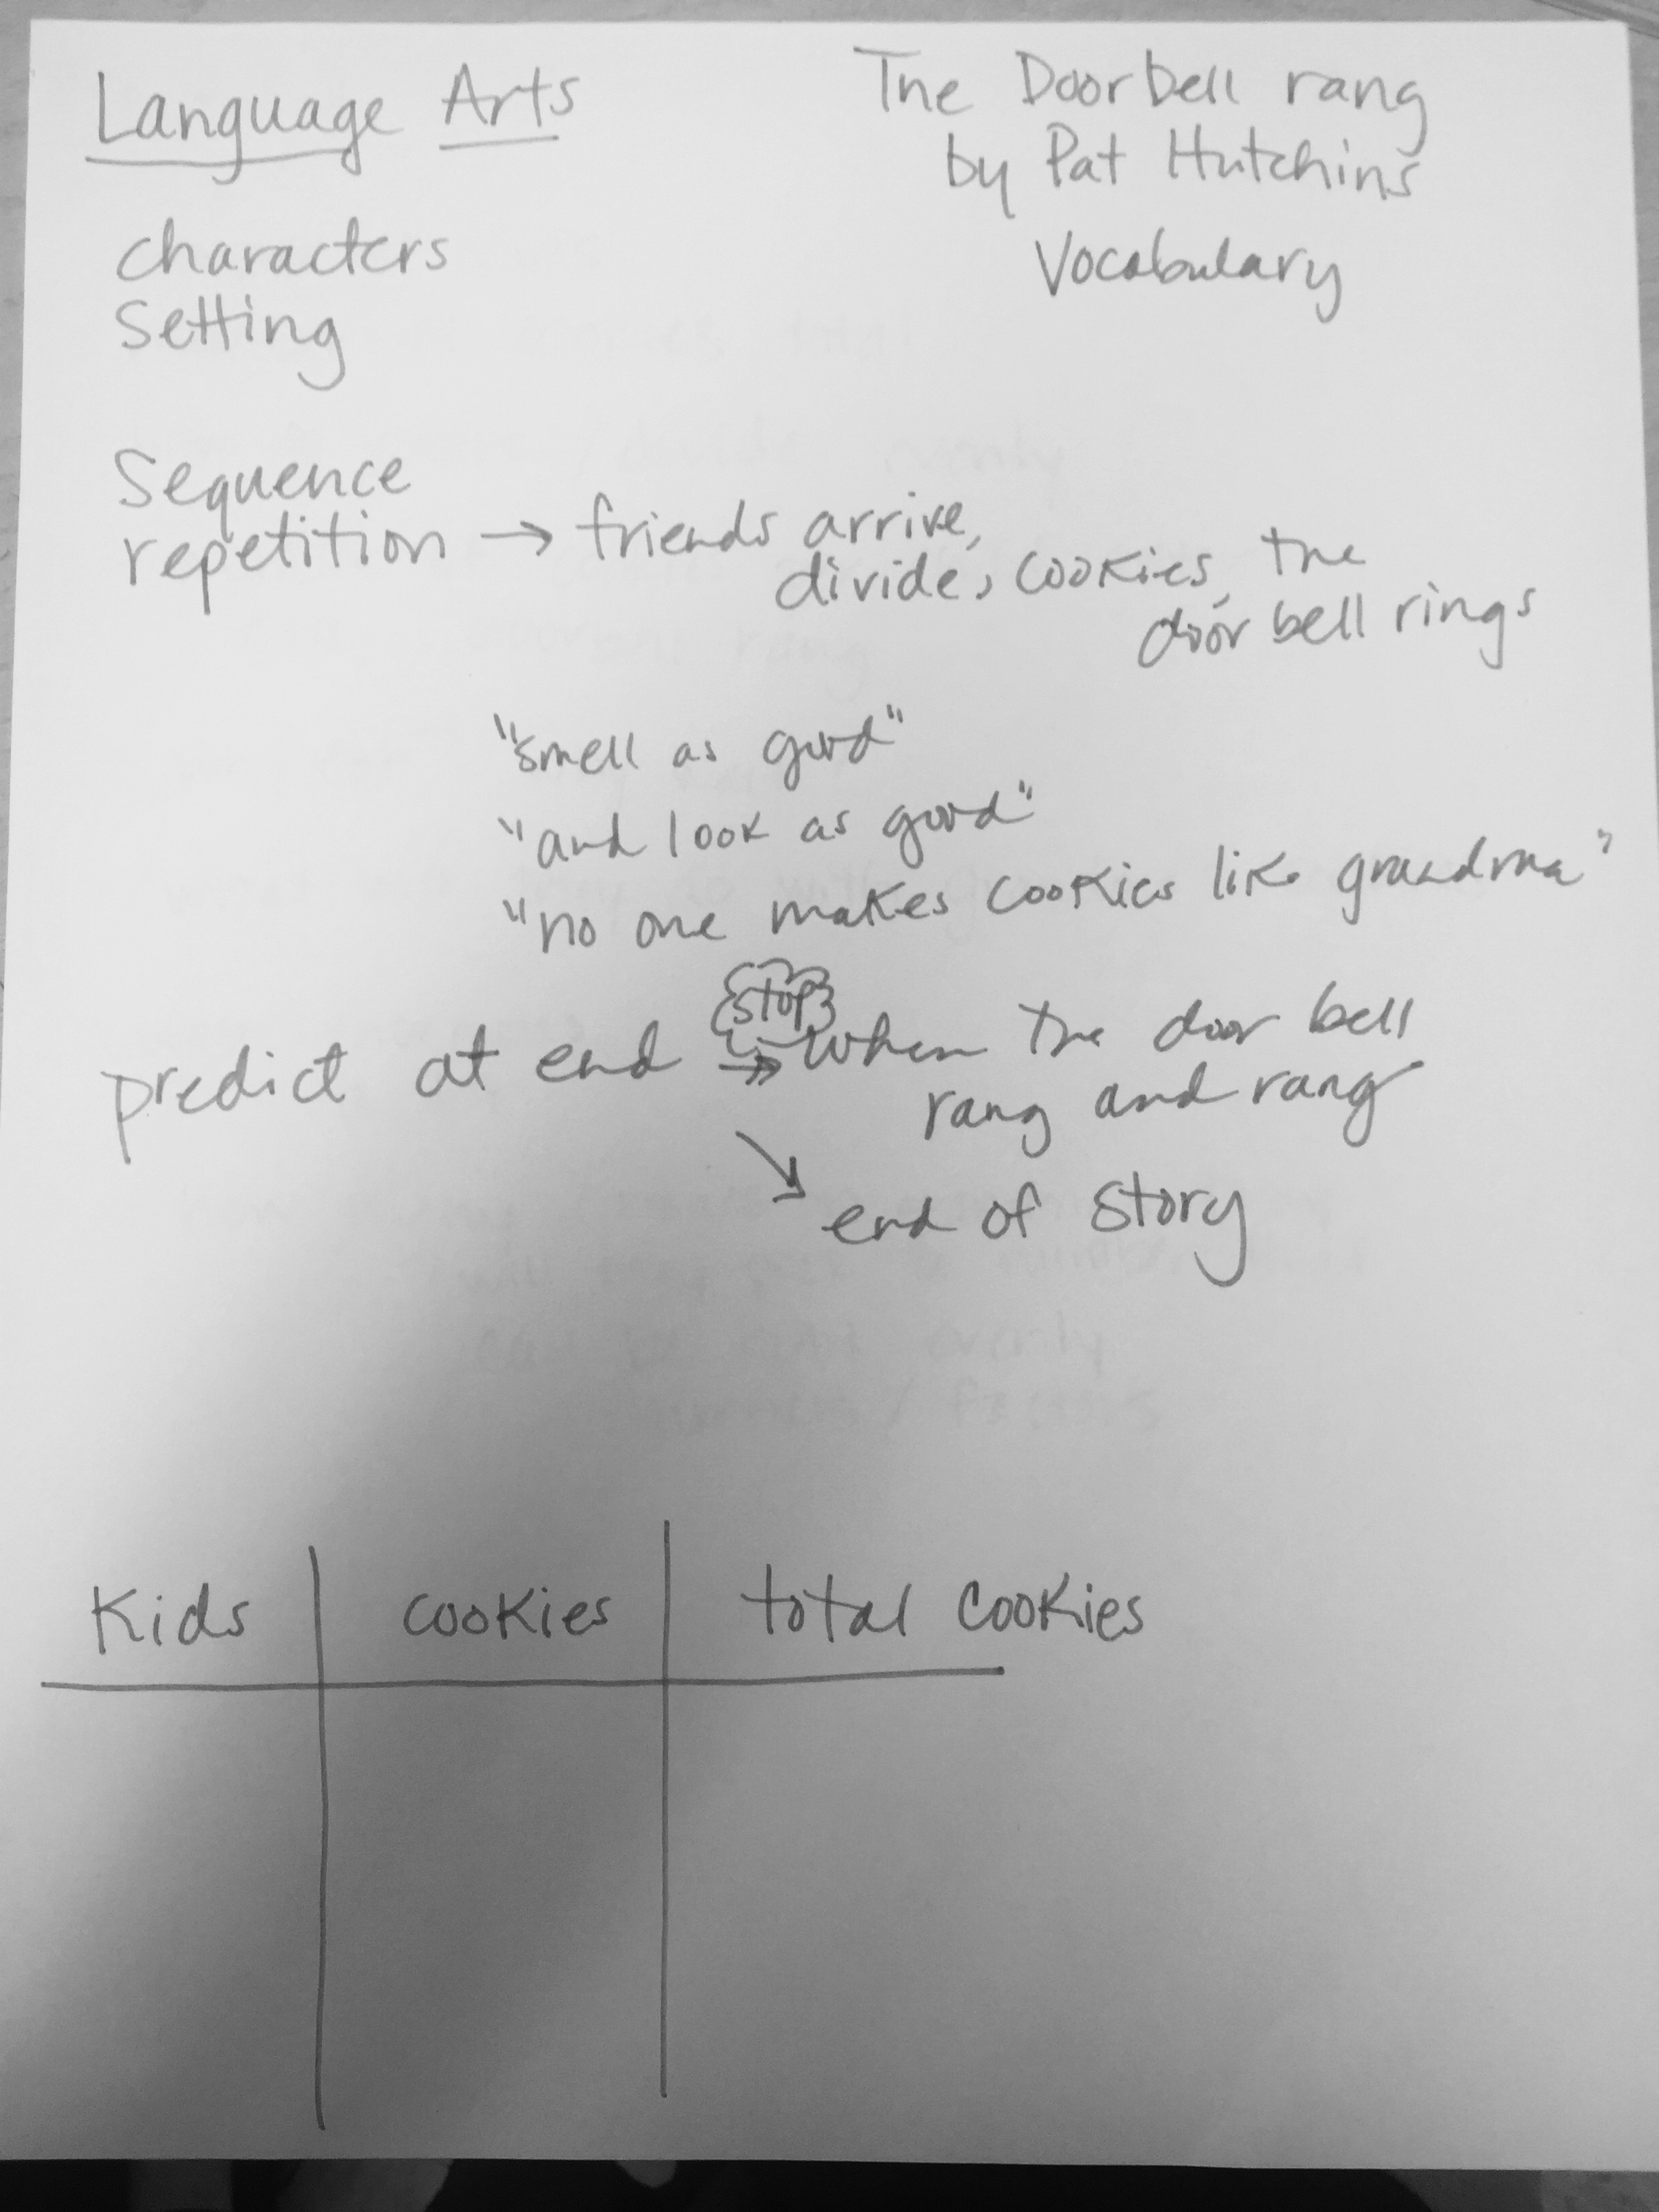 Language Arts
The Doorbell rang
by Pat Hutchins
Vocabulary
characters
Setting
Sequence
repetition → friends arrive,
divide, cookies, the
door bell rings
"smell as good"
"and look as good"
"no one makes cookies like grandma"
stop
predict at end → when the door bell
rang and rang
↘ end of story
Kids cookies total cookies